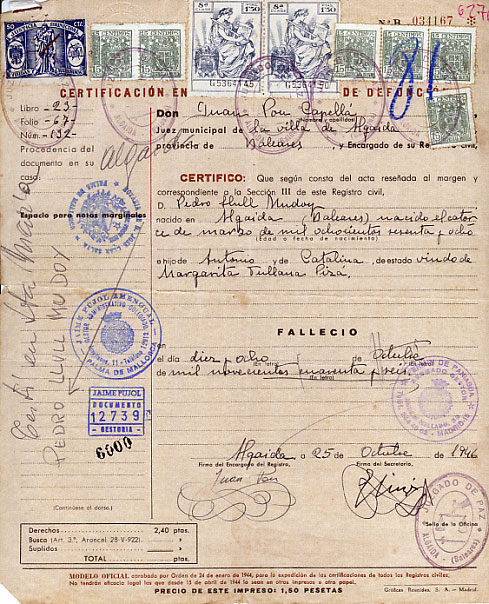 Nº B 034167
50 CTS.
15 CENTIMOS
8ª CLASE 1'50
8ª CLASE 1'50
G5364149
G5364150
81
CERTIFICACIÓN EN DE DEFUNCIÓN
Libro -23-
Folio -67-
Núm. -132-
Procedencia del documento en su caso:
Algaida
Don Juan Pou Capellá
(Nombre y apellidos)
Juez municipal de La villa de Algaida
provincia de Baleares, y Encargado de su Registro
CERTIFICO: Que según consta del acta reseñada al margen y
correspondiente a la Sección III de este Registro civil,
Espacio para notas marginales
D. Pedro Llull Mudoy
nacido en Algaida (Baleares) nacido el cator
ce de marzo de mil ochocientos sesenta y ocho
(Edad o fecha de nacimiento)
hijo de Antonio y de Catalina, de estado viudo de
Margarita Fullana Pizá,
PEDRO LLULL MUDOY
JAIME PUJOL AMENGUAL
PALMA DE MALLORCA
FALLECIÓ
el día diez y ocho de Octubre
de mil novecientos cuarenta y seis
(En letra)
JAIME PUJOL
DOCUMENTO
12739
GESTORIA
6000
Algaida a 25 de Octubre de 1946
Firma del Encargado del Registro,
Firma del Secretario,
Juan Pou
(Continúese al dorso.)
JUZGADO DE PAZ
ALGAIDA (Baleares)
(Sello de la Oficina)
Derechos 2,40 ptas.
Busca (Art. 3.º, Arancel 28-V-922)
Suplidos
TOTAL ptas.
MODELO OFICIAL aprobado por Orden de 24 de enero de 1944, para la expedición de las certificaciones de todos los Registros civiles;
No tendrán eficacia legal las que desde 15 de abril de 1944 lo sean en otros impresos o otro papel.
PRECIO DE ESTE IMPRESO: 1,50 PESETAS
Gráficas Reunidas, S. A. — Madrid.